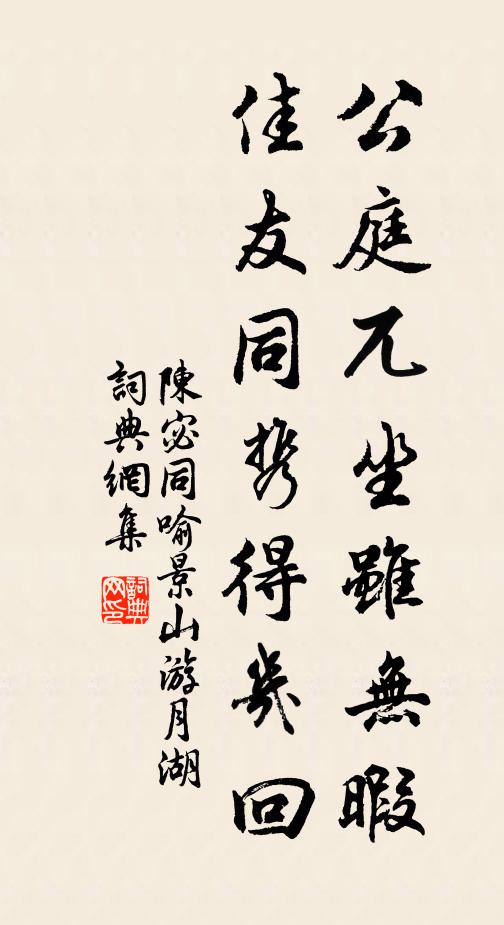 公庭兀坐雖無暇
佳友同携得幾回
陳宓同喻景山游月湖
詞典網集
詞典網印